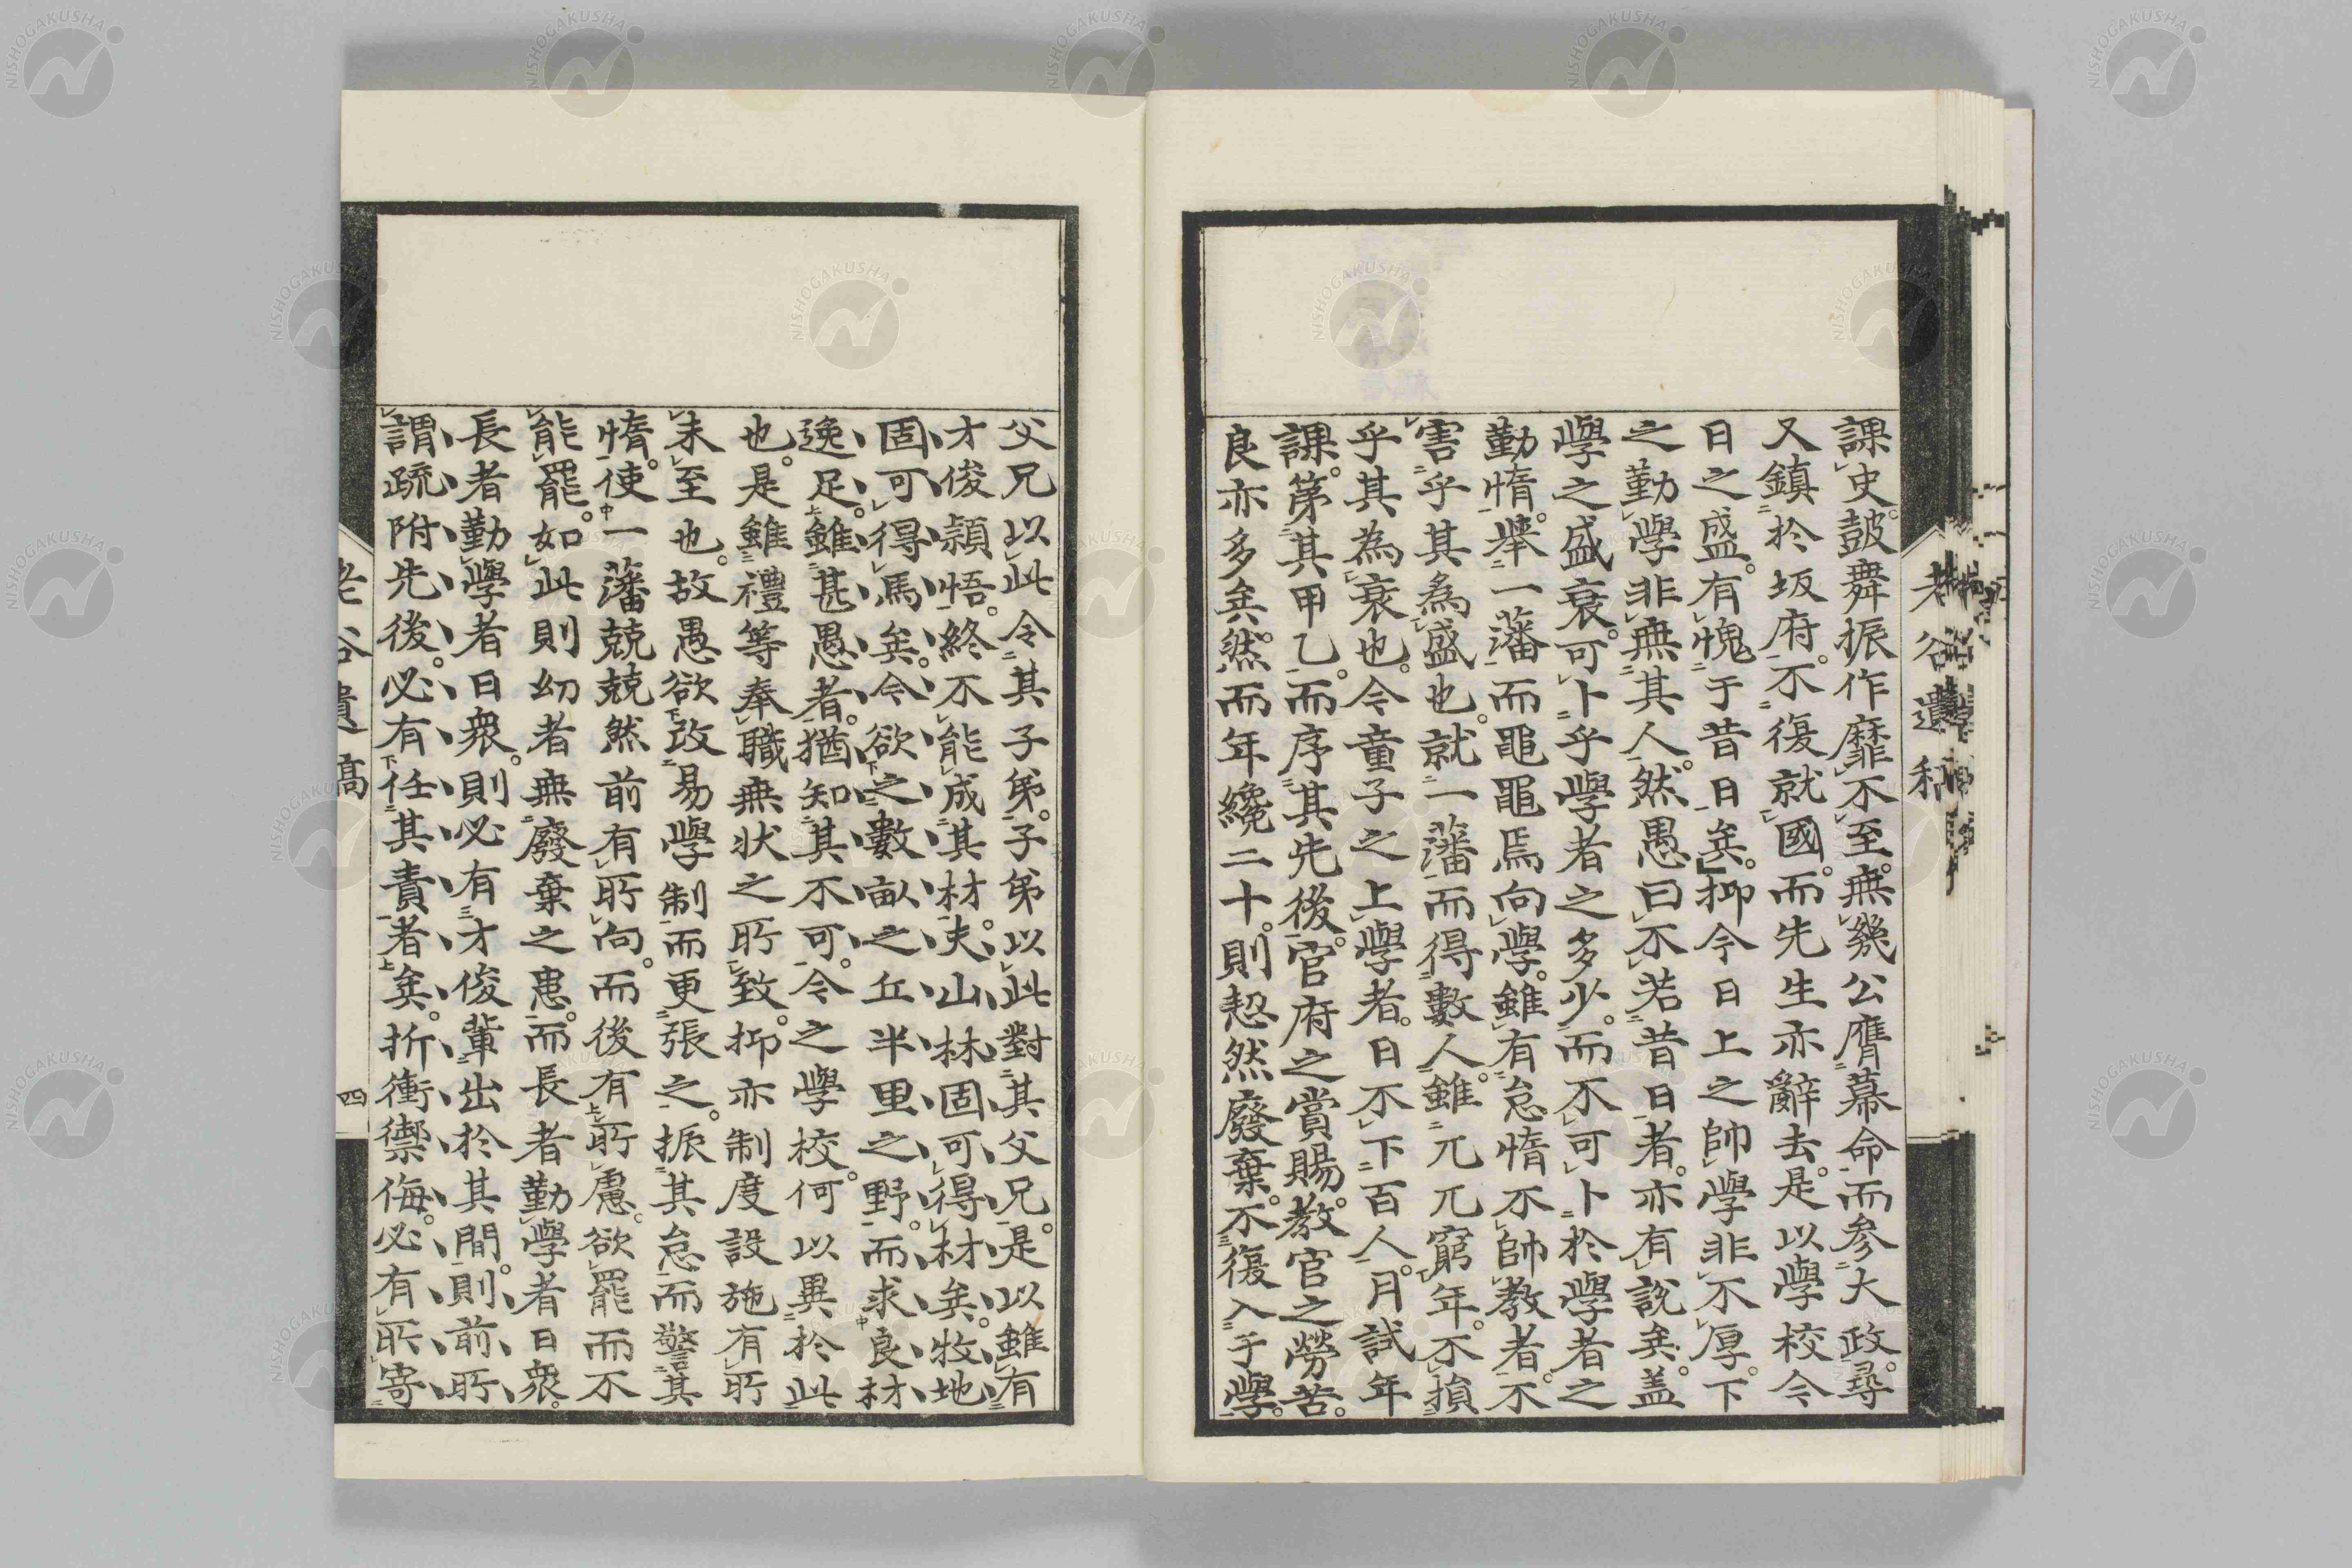 課史。鼓舞振作靡不至。無幾公膺幕命而參大政。尋
又鎮於坂府。不復就國。而先生亦辭去。是以學校今
日之盛。有愧于昔日矣。抑今日上之帥學非不厚。下
之勤學非無其人。然愚曰不若昔日者。亦有說矣。盖
學之盛衰。可卜乎學者之多少。而不可卜於學者之
勤惰。舉一藩而黽黽焉向學。雖有怠惰不帥教者。不
害乎其為盛也。就一藩而得數人。雖兀兀窮年。不損
乎其為衰也。今童子之上學者。日不下百人。月試年
課。第其甲乙。而序其先後。官府之賞賜。教官之勞苦。
良亦多矣。然而年纔二十。則恝然廢棄。不復入于學。
父兄以此令其子弟。子弟以此對其父兄。是以雖有
才俊頴悟。終不能成其材。夫山林固可得材矣。牧地
固可得馬矣。今欲之數畝之丘半里之野。而求良材
逸足。雖甚愚者。猶知其不可。今之學校。何以異於此
也。是雖禮等奉職無状之所致。抑亦制度設施有所
未至也。故愚欲改易學制而更張之。振其怠而警其
惰。使一藩兢兢然前有所向。而後有所慮。欲罷而不
能罷。如此則幼者無廢棄之患。而長者勤學者日衆。
長者勤學者日衆。則必有才俊輩出於其間。則前所
謂疏附先後。必有任其責者矣。折衝禦侮。必有所寄
老谷遺稿
老谷遺稿
四
NISHOGAKUSHA